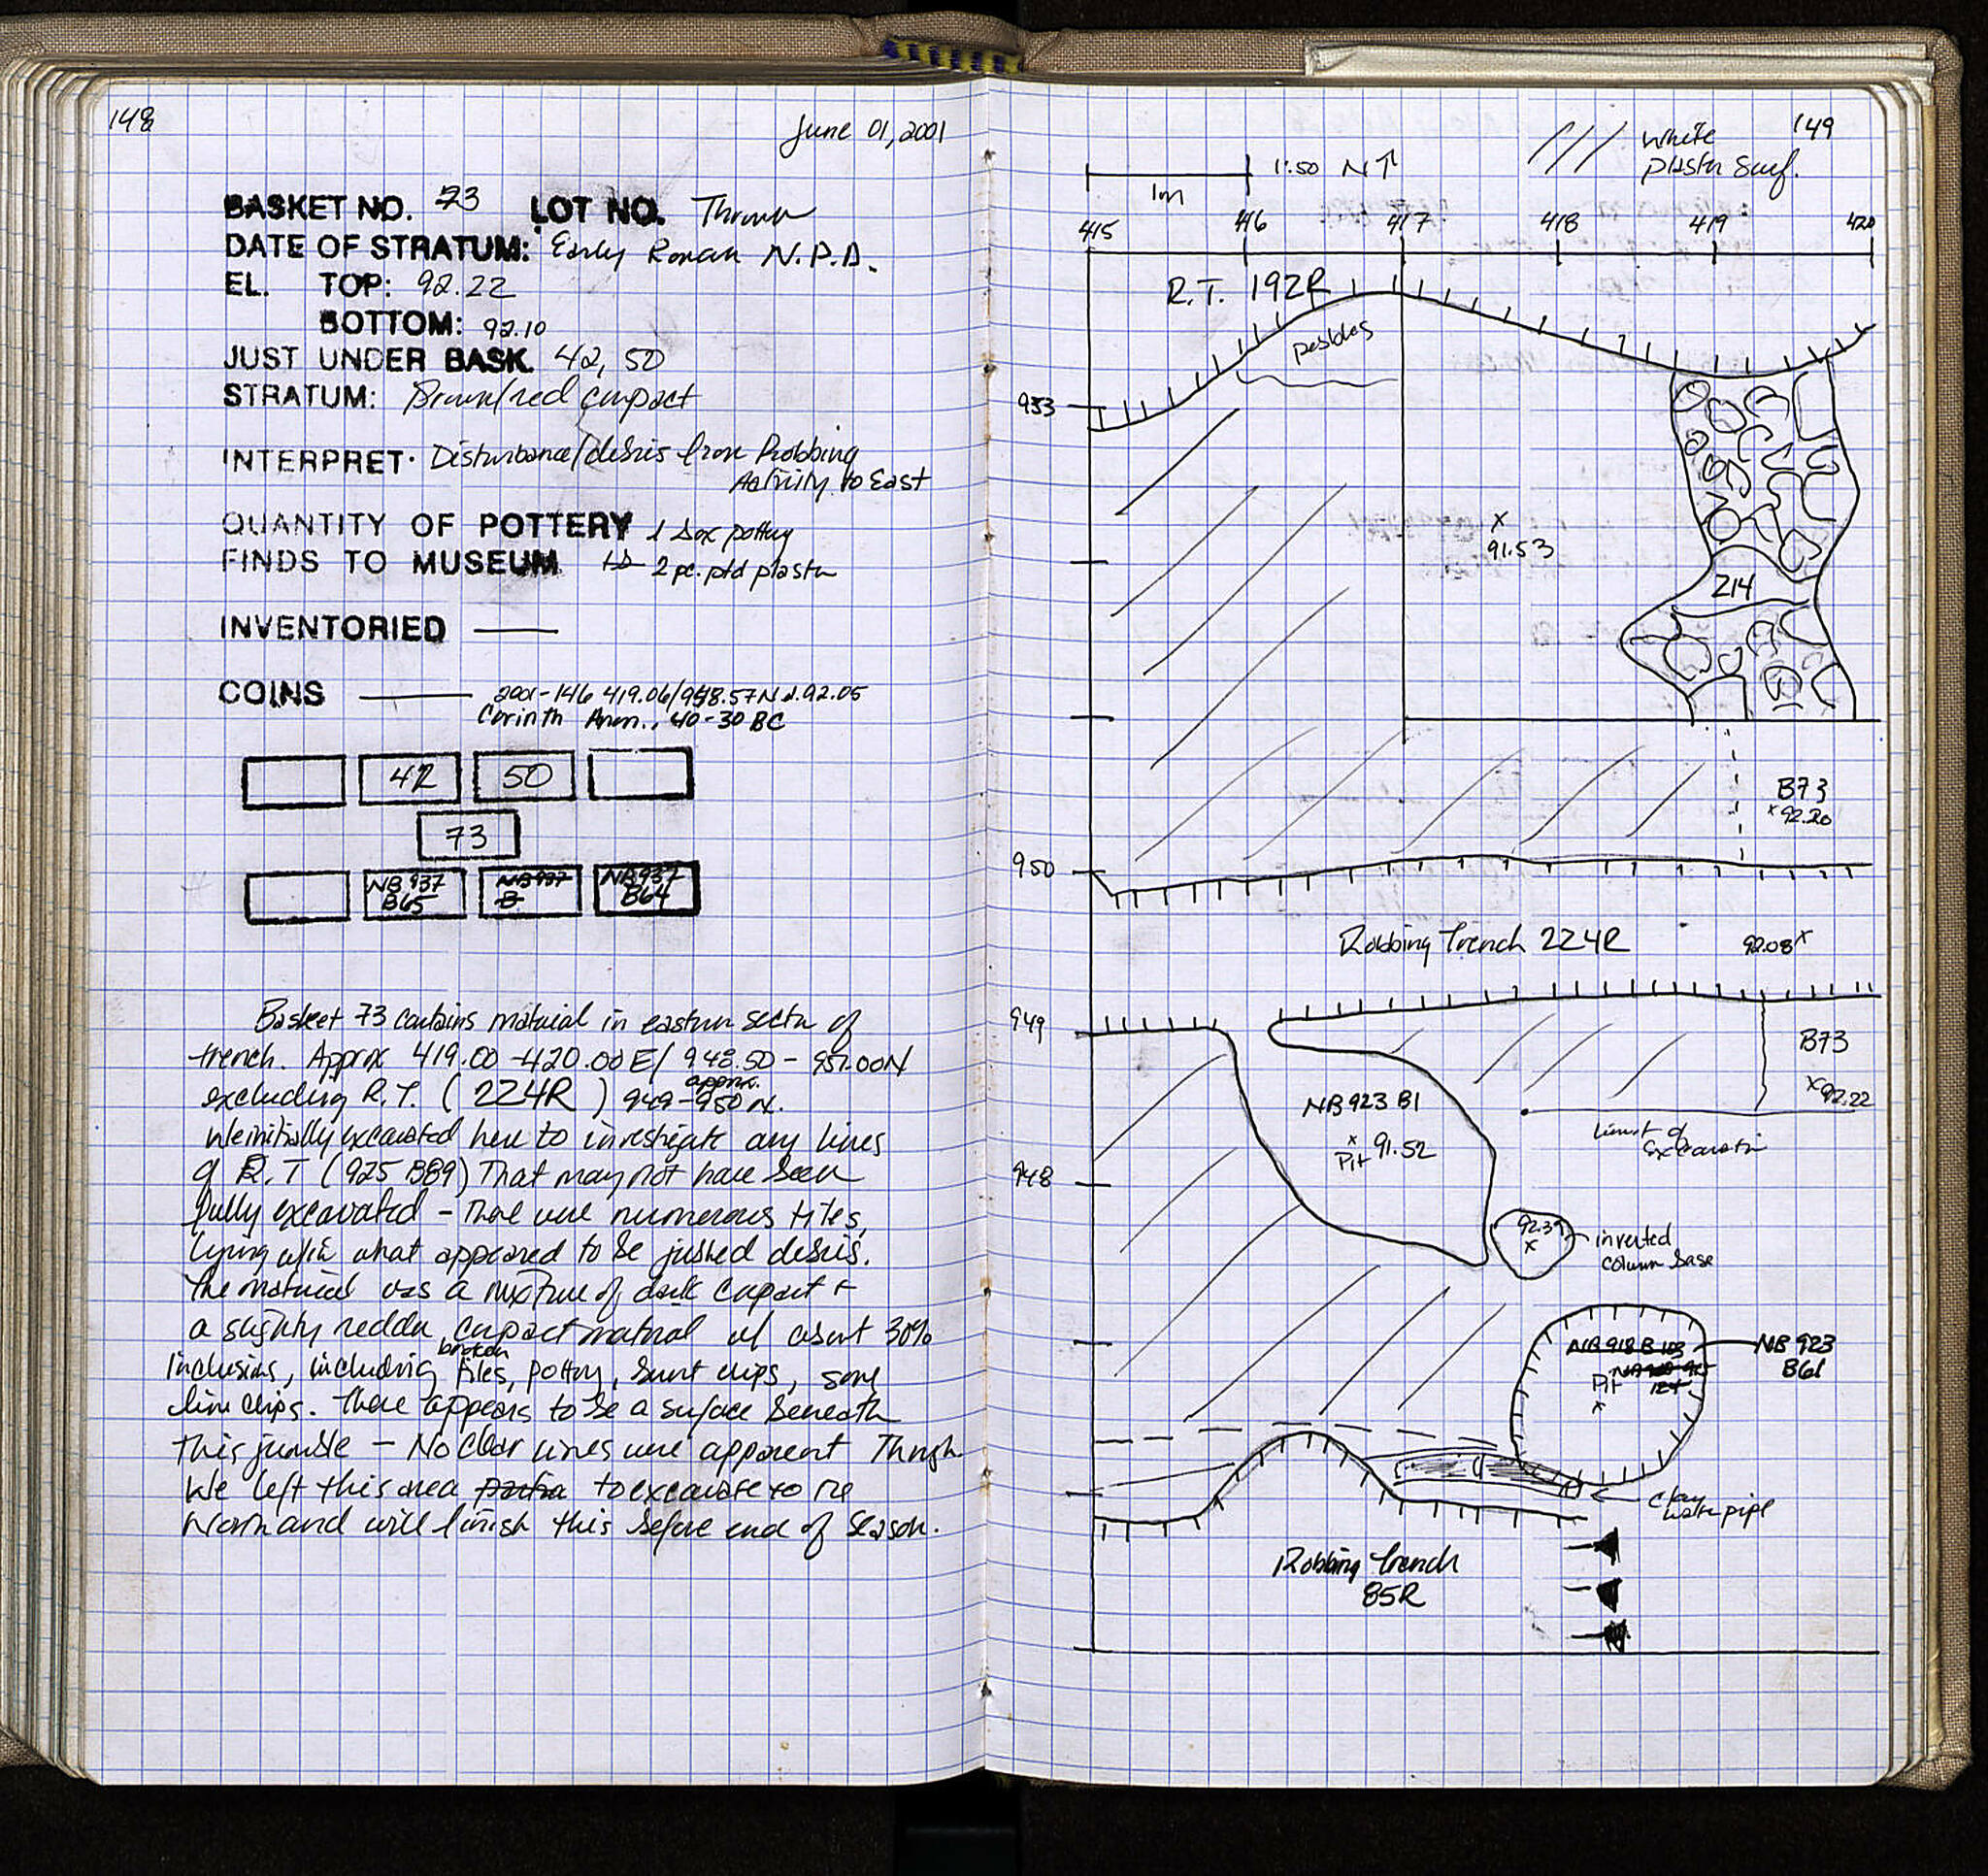 148
June 01, 2001
BASKET NO. 73 LOT NO. Thrown
DATE OF STRATUM: Early Roman N.P.D.
EL. TOP: 92.22
BOTTOM: 92.10
JUST UNDER BASK. 42, 50
STRATUM: Brown/red compact
INTERPRET. Disturbance/debris from Robbing
Activity to East
QUANTITY OF POTTERY 1 box pottery
FINDS TO MUSEUM 2 pc. ptd plaster
INVENTORIED —
COINS — 2001-146 419.06/948.57N d.92.05
Corinth Anon., 40-30 BC
42 50
73
NB 937 B65 NB 937 B NB 937 B64
Basket 73 contains material in eastern sector of
trench. Approx 419.00-420.00 E/ 948.50 - 951.00N
excluding R.T. (224R) approx. 949-950 N.
We initially excavated here to investigate any lines
of R.T (925 B89) That may not have been
fully excavated - There were numerous tiles,
lying w/in what appeared to be jumbled debris.
The material was a mixture of dark compact +
a slightly redder, compact material w/ about 30%
inclusions, including broken tiles, pottery, burnt clips, some
lime clips. There appears to be a surface beneath
this jumble - No clear lines were apparent Though
We left this area to excavate to the
North and will finish this before end of season.
149
/// White
plaster surf.
1m 1:50 N↑
415 416 417 418 419 420
R.T. 192R
pebbles
953
x
91.53
214
B73
x 92.20
950
Robbing Trench 224R 92.08 x
949
B73
x 92.22
NB 923 B1
x
Pit 91.52
Limit of
Excavation
948
92.39
x
inverted
column base
NB 918 B 103
NB 923
B61
Pit
x
clay
water pipe
Robbing Trench
85R